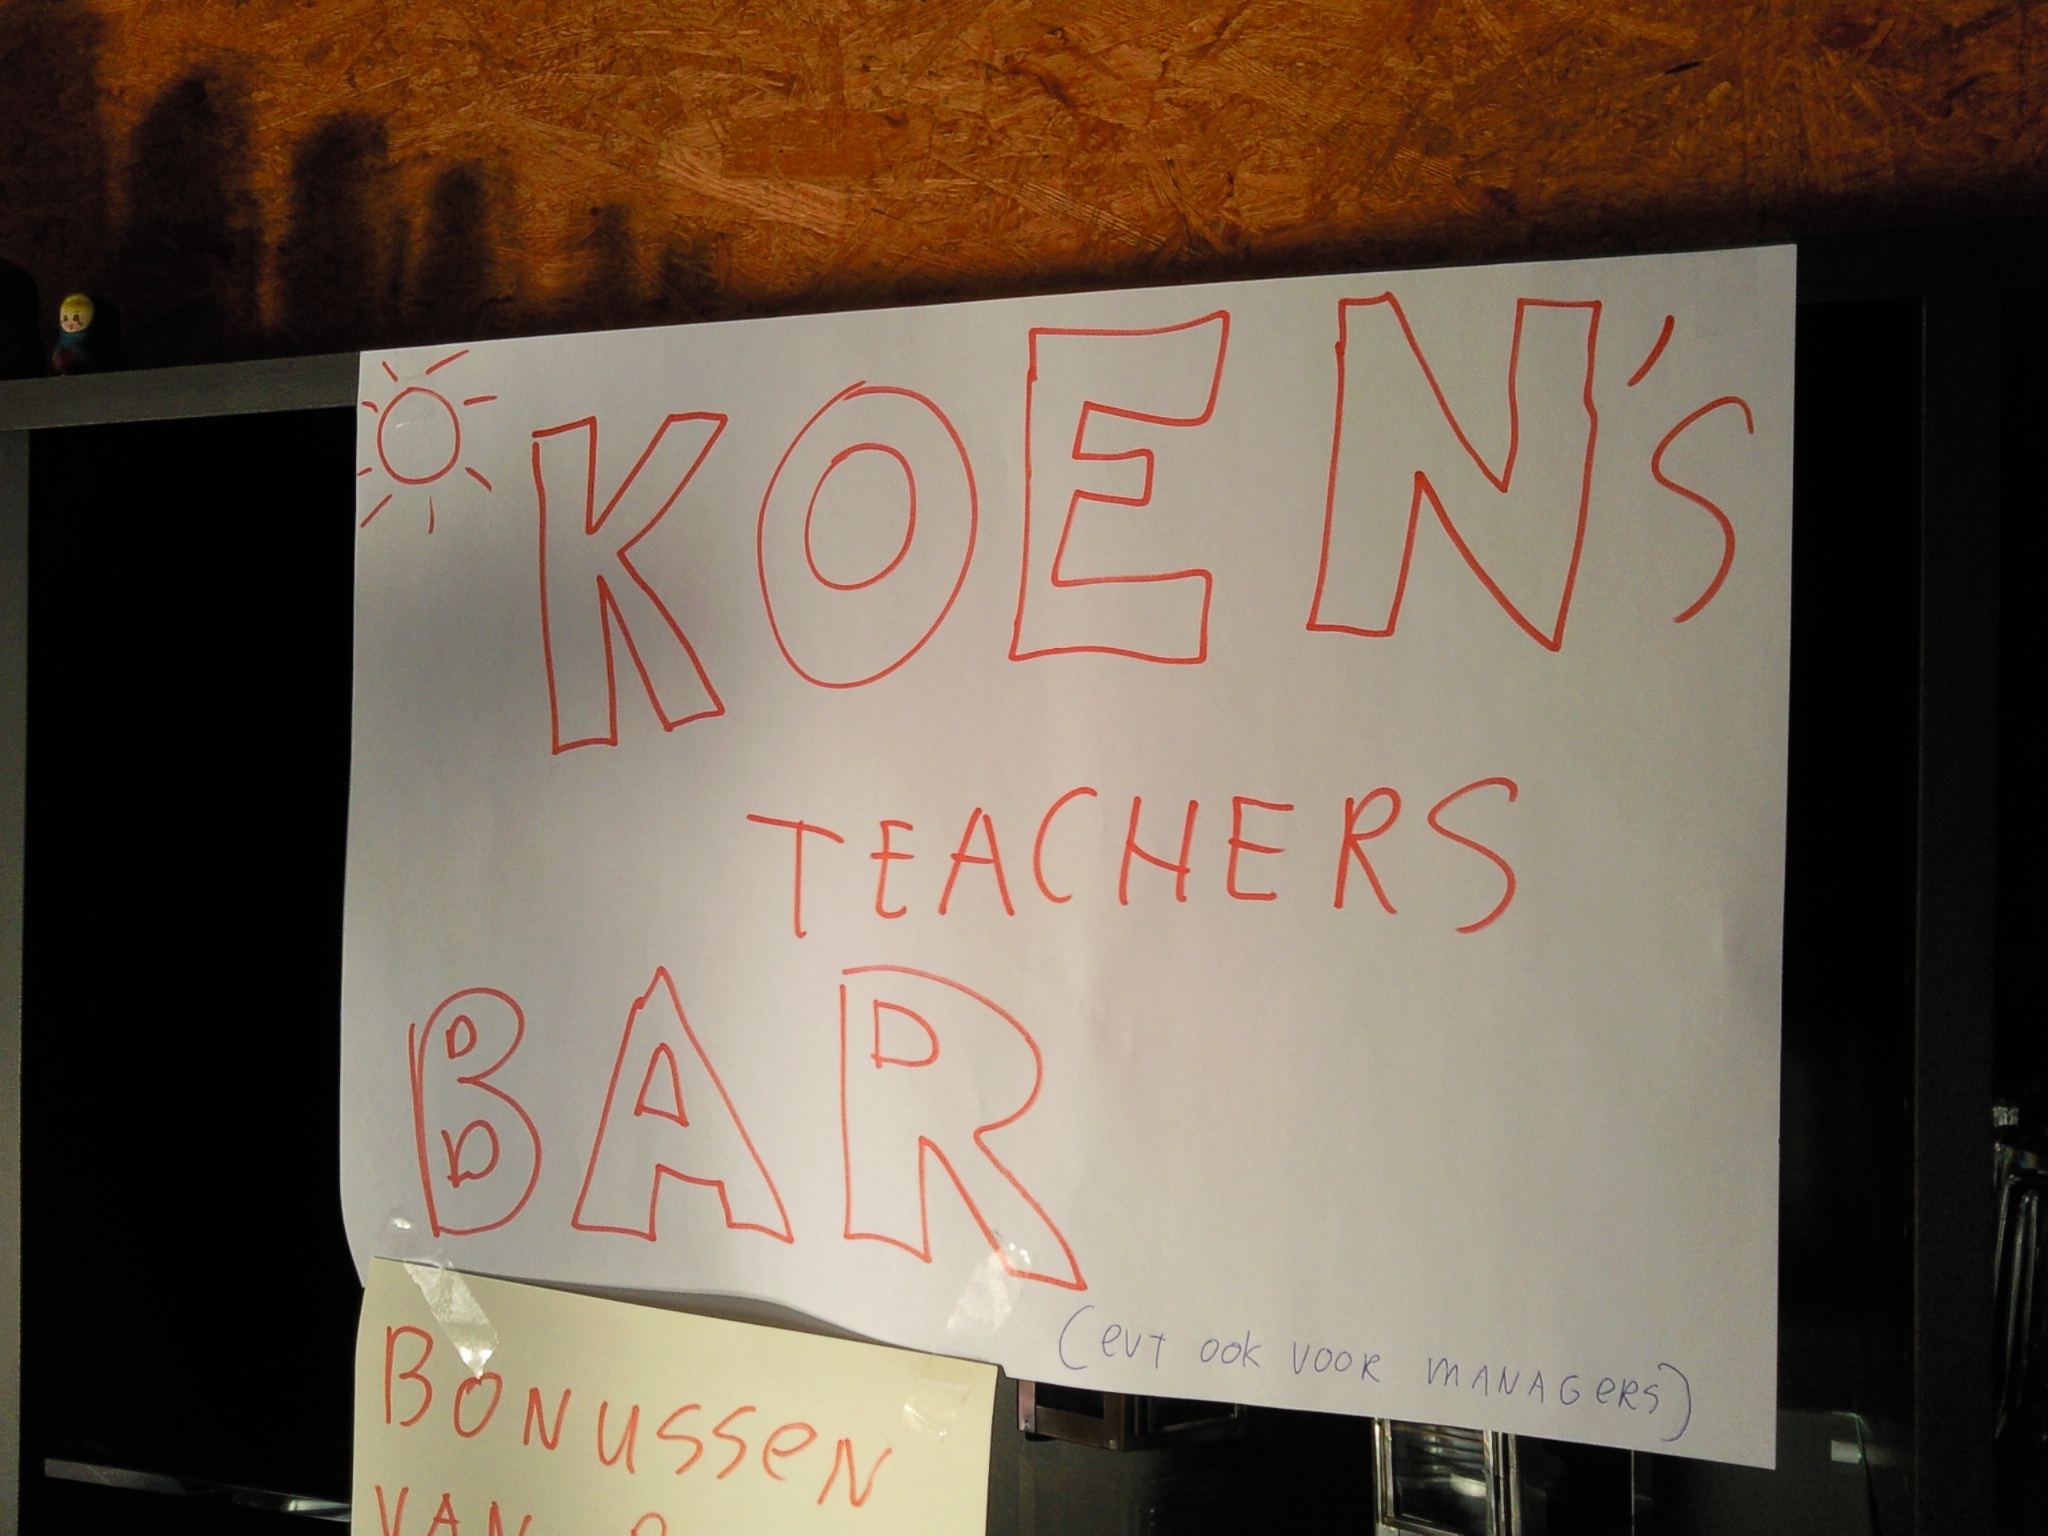 KOEN's
TEACHERS
BAR
(evt ook voor managers)
BONUSSEN
VAN